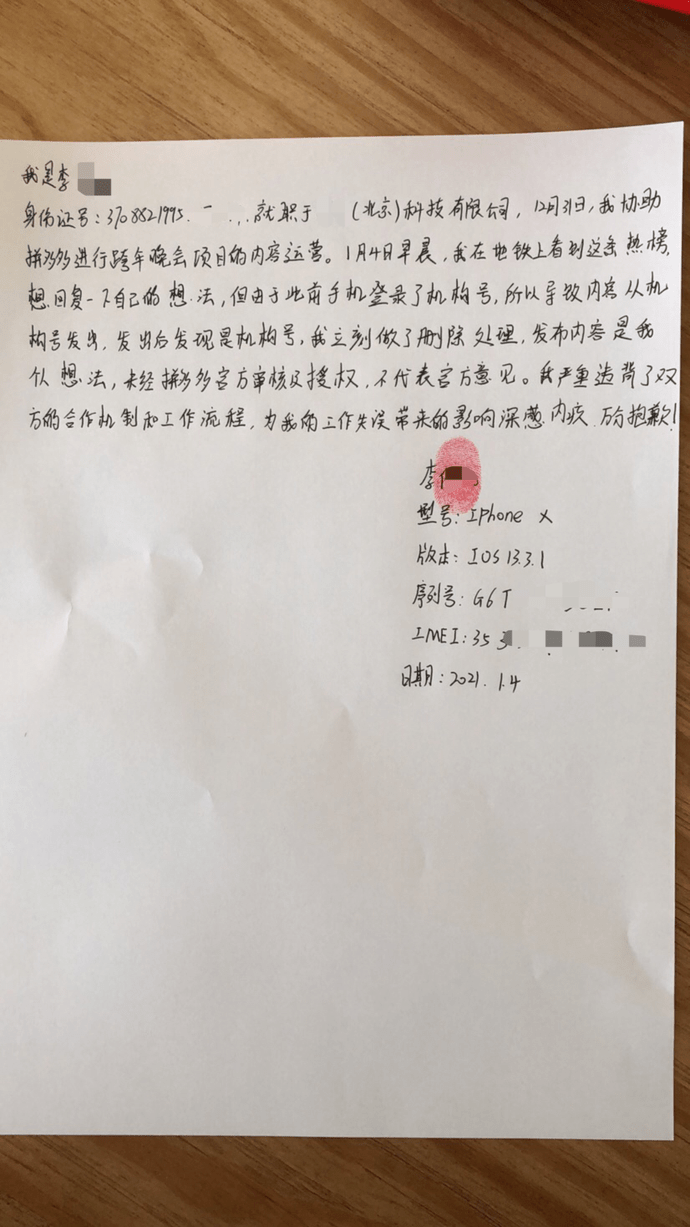 我是李
身份证号:3708821995. 就职于 (北京)科技有限公司,12月31日,我协助
拼多多进行跨年晚会项目的内容运营。1月4日早晨,我在地铁上看到这条热榜,
想回复一下自己的想法,但由于此前手机登录了机构号,所以导致内容从机
构号发出,发出后发现是机构号,我立刻做了删除处理,发布内容是我
个人想法,未经拼多多官方审核及授权,不代表官方意见。我严重违背了双
方的合作机制和工作流程,为我的工作失误带来的影响深感内疚 万分抱歉!
李
型号:IPhone X
版本:IOS 13.3.1
序列号:G6T
IMEI:353
日期:2021.1.4